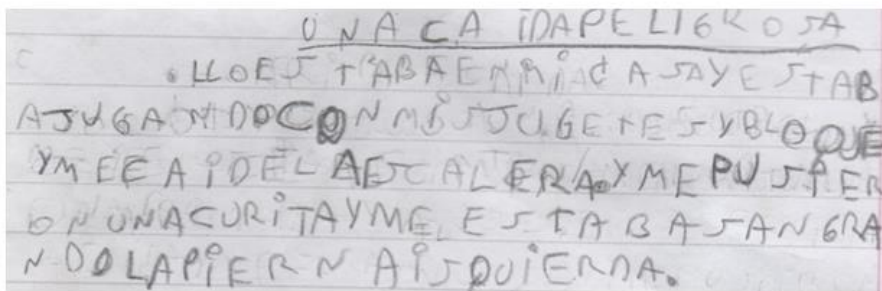 UNACA IDAPELIGROSA
.LLOES TABAENMiCASAYESTAB
AJUGANDOCONMiSJUGETESYBLOQUE
YMEEAiDELAESCALERA.YMEPUSiER
ONUNACURiTAYME ESTABASANGRA
NDOLAPiERNAiSQUiERDA.